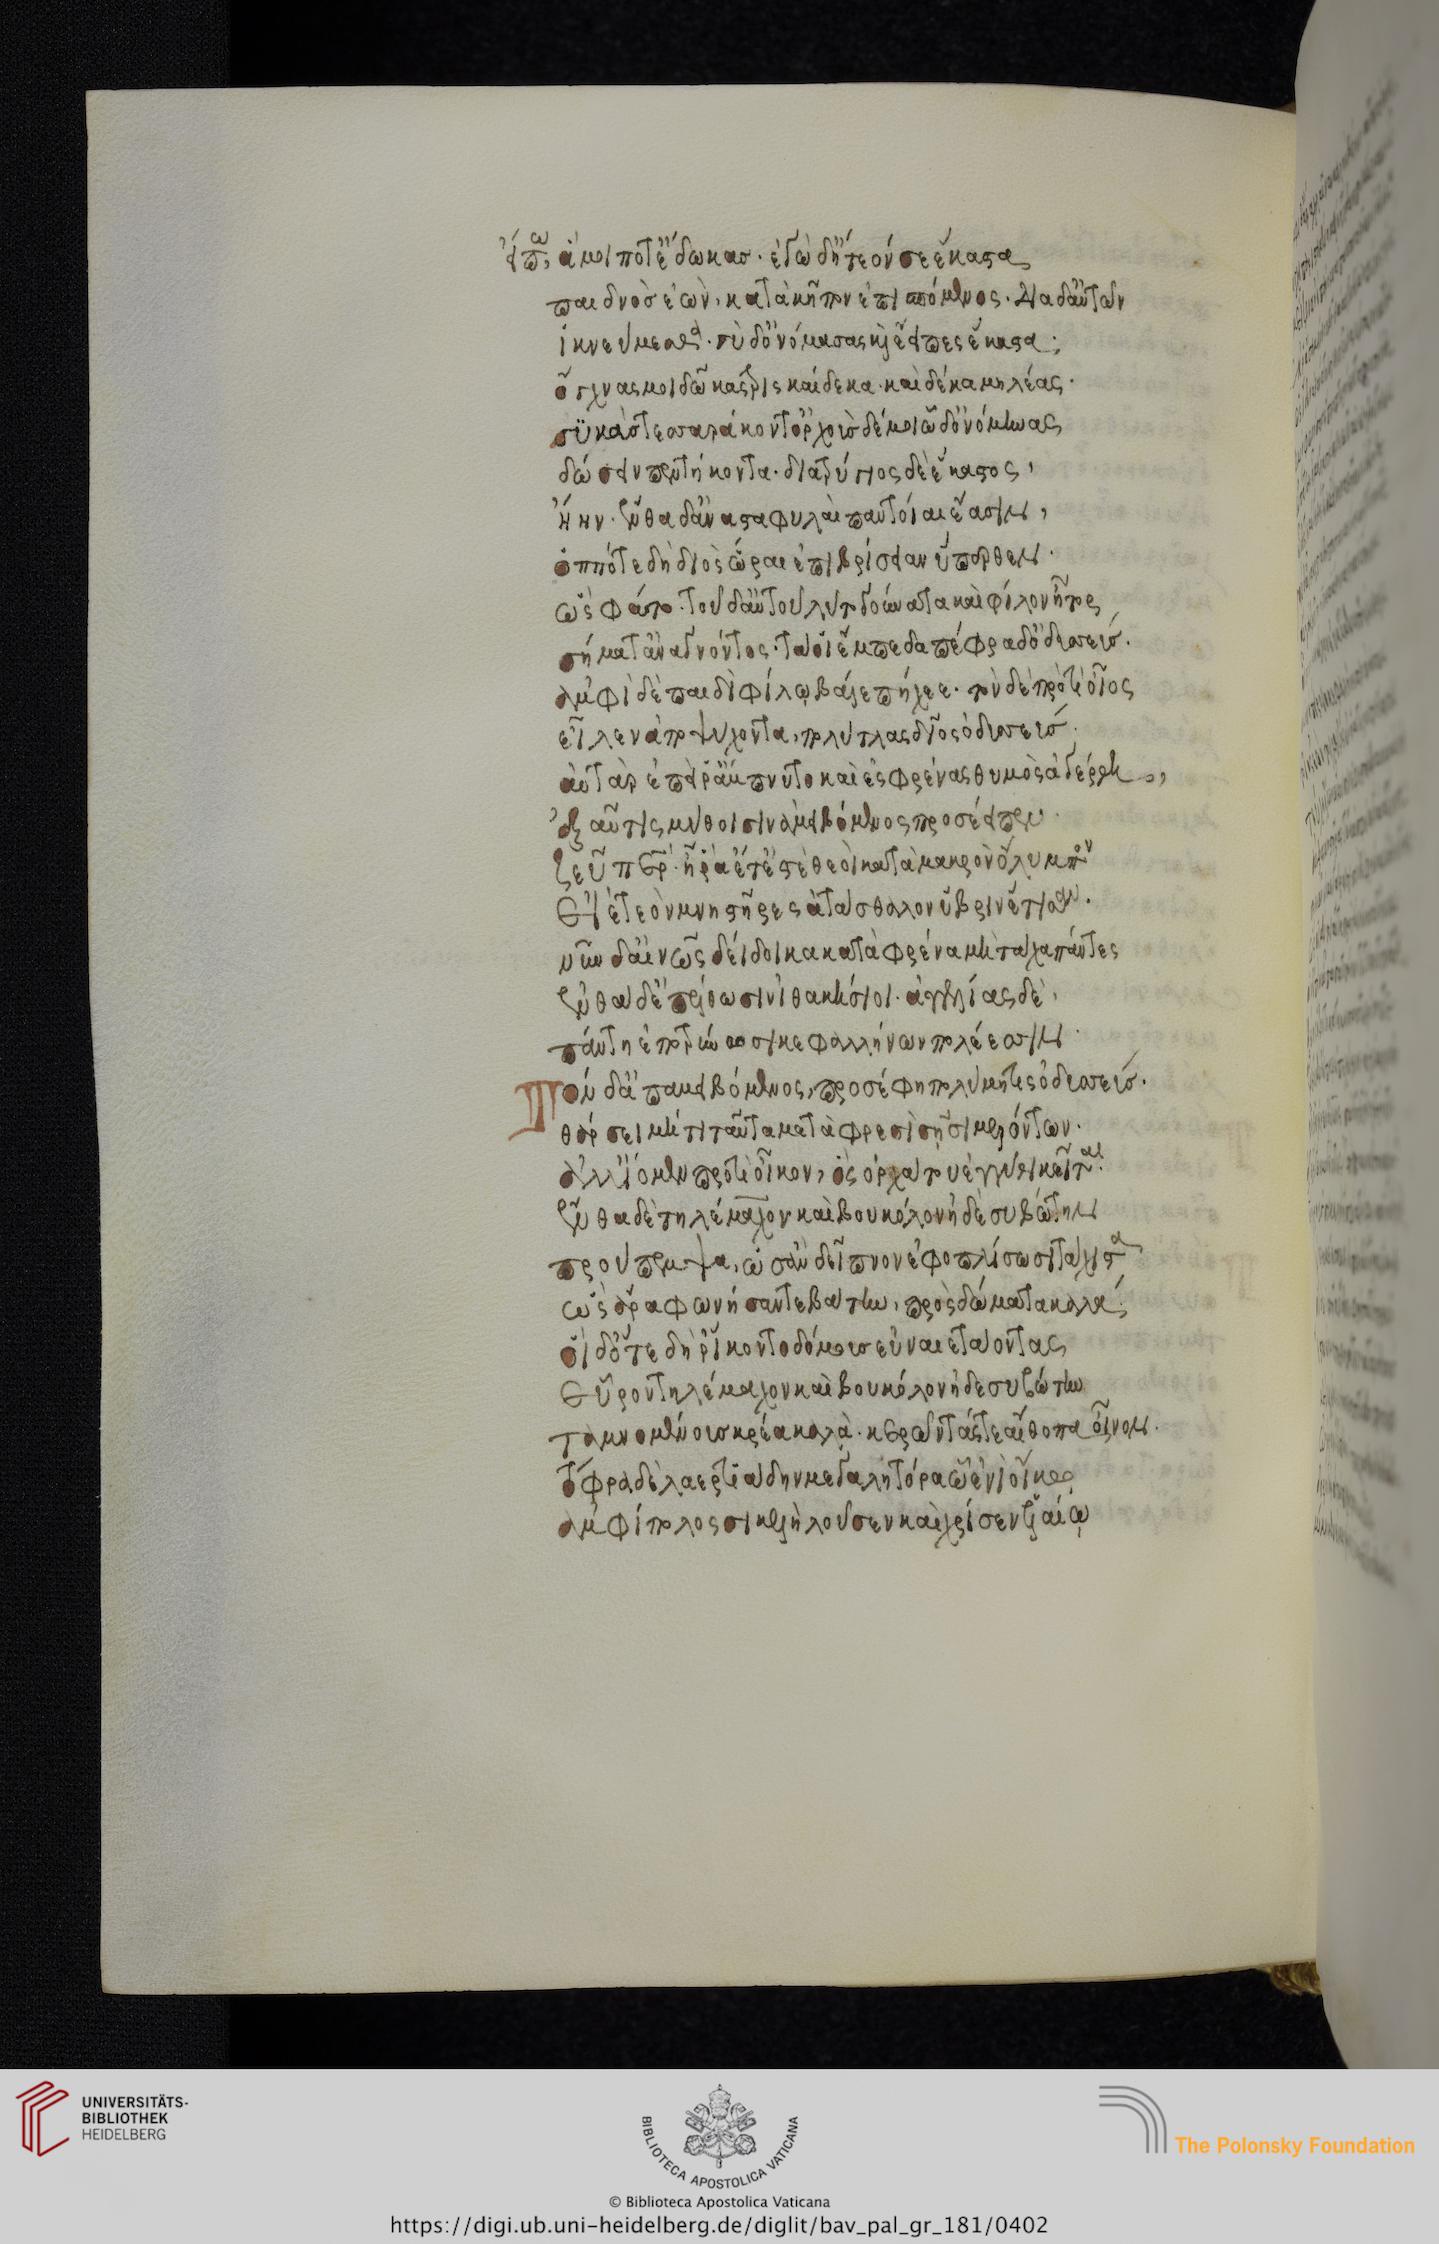 εἴπω ἅ μοι ποτ' ἔδωκας· ἐγὼ δ' ᾔτεόν σε ἕκαστα
παιδνὸς ἐὼν, κατὰ κῆπον ἐπισπόμενος· διὰ δ' αὐτῶν
ἱκνεύμεσθα· σὺ δ' ὀνόμασας καὶ ἔειπες ἕκαστα·
ὄγχνας μοι δῶκας τρὶς καίδεκα· καὶ δέκα μηλέας·
σῦκα δὲ τεσσαράκοντ' ὄρχους δέ μοι ὧδ' ὀνόμηνας
δώσειν πεντήκοντα· διατρύγιος δὲ ἕκαστος,
ἤην· ἔνθα δ' ἀνὰ σταφυλαὶ παντοῖαι ἔασιν,
ὁππότε δὴ διὸς ὧραι ἐπιβρίσειαν ὕπερθεν·
ὣς φάτο· τοῦ δ' αὐτοῦ λύτο γούνατα καὶ φίλον ἦτορ
σήματ' ἀναγνόντος· τά οἱ ἔμπεδα πέφραδ' ὀδυσσεύς·
ἀμφὶ δὲ παιδὶ φίλῳ βάλε πήχεε· τὸν δὲ προτὶ οἷ
εἷλεν ἀποψύχοντα, πολύτλας δῖος ὀδυσσεύς·
αὐτὰρ ἐπεί ῥ' ἄμπνυτο καὶ ἐς φρένας θυμὸς ἀγέρθη,
ἐξαῦτις μύθοισιν ἀμειβόμενος προσέειπεν·
ζεῦ πάτερ· ἦ ῥα ἔτ' ἐστὲ θεοὶ κατὰ μακρὸν ὄλυμπον
εἰ ἐτεὸν μνηστῆρες ἀτάσθαλον ὕβριν ἔτισαν·
νῦν δ' αἰνῶς δείδοικα κατὰ φρένα μὴ τάχα πάντες
ἐνθάδ' ἐπέλθωσιν ἰθακήσιοι· ἀγγελίας δὲ,
πάντη ἐποτρύνωσι κεφαλλήνων πολέεσσιν·
Τὸν δ' ἀπαμειβόμενος, προσέφη πολύμητις ὀδυσσεύς·
θάρσει μή τι ταῦτα μετὰ φρεσὶ σῇσι μελόντων·
ἀλλ' ἴομεν προτὶ οἶκον, ὃς ὀρχάτου ἐγγύθι κεῖται·
ἔνθα δὲ τηλέμαχον καὶ βουκόλον ἠδὲ συβώτην
προύπεμψα, ὡς ἂν δεῖπνον ἐφοπλίσωσι τάχιστα
ὣς ἄρα φωνήσαντε βάτην, πρὸς δώματα καλά·
οἱ δ' ὅτε δή ῥ' ἵκοντο δόμους εὐναιετάοντας
εὗρον τηλέμαχον καὶ βουκόλον ἠδὲ συβώτην
ταμνομένους κρέα καλὰ· κερῶντάς τε αἴθοπα οἶνον·
τόφρα δὲ λαερτιάδην μεγαλήτορα ᾧ ἐνὶ οἴκῳ
ἀμφίπολος σικελὴ λοῦσεν καὶ χρῖσεν ἐλαίῳ
UNIVERSITÄTS-
BIBLIOTHEK
HEIDELBERG
BIBLIOTECA APOSTOLICA VATICANA
The Polonsky Foundation
© Biblioteca Apostolica Vaticana
https://digi.ub.uni-heidelberg.de/diglit/bav_pal_gr_181/0402